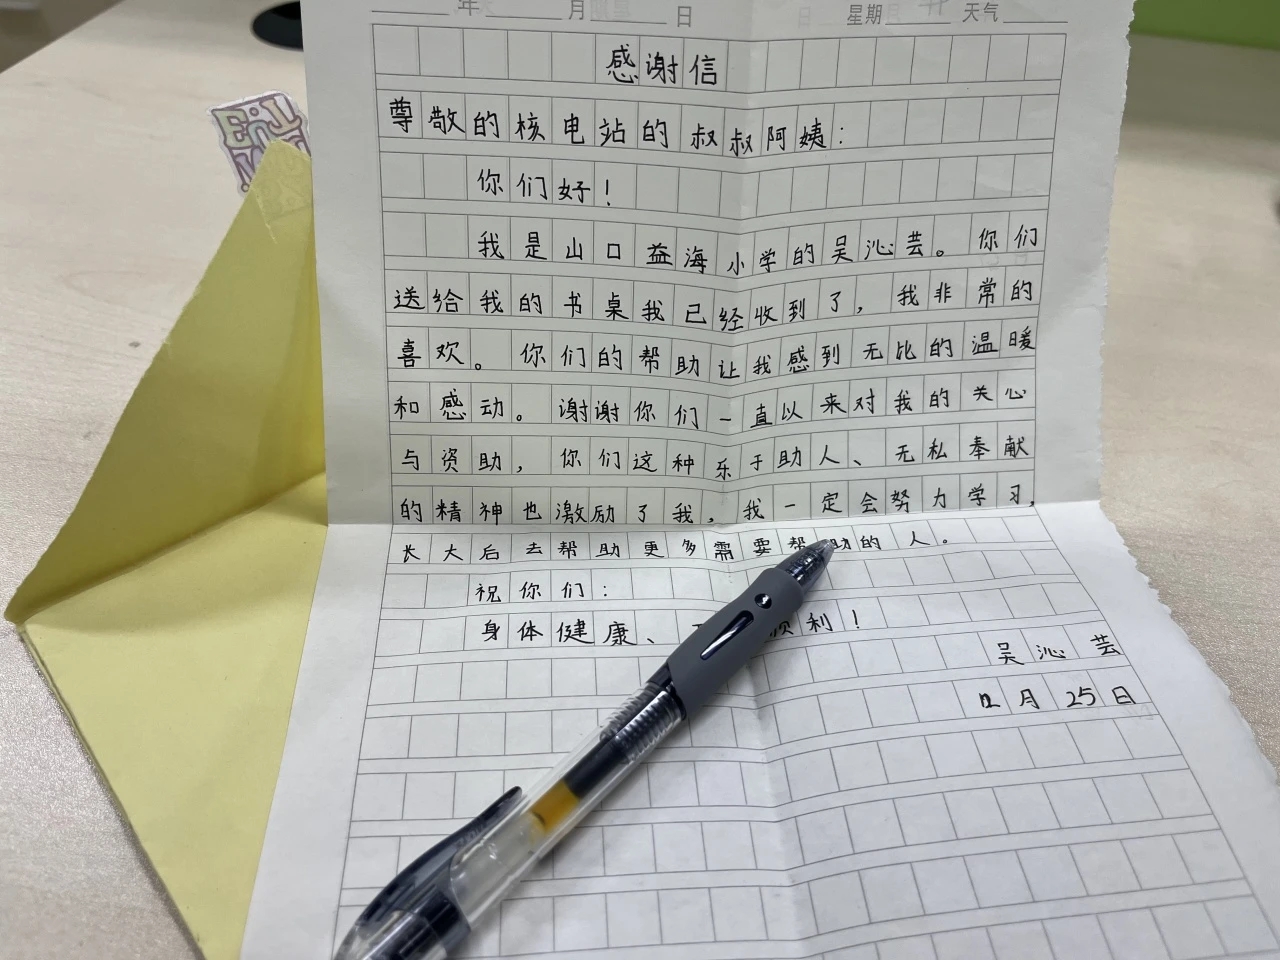 年 月 日 星期 天气
感谢信
尊敬的核电站的叔叔阿姨：
你们好！
我是山口益海小学的吴沁芸。你们
送给我的书桌我已经收到了，我非常的
喜欢。你们的帮助让我感到无比的温暖
和感动。谢谢你们一直以来对我的关心
与资助，你们这种乐于助人、无私奉献
的精神也激励了我，我一定会努力学习，
长大后去帮助更多需要帮助的人。
祝你们：
身体健康、顺利！
吴沁芸
月25日